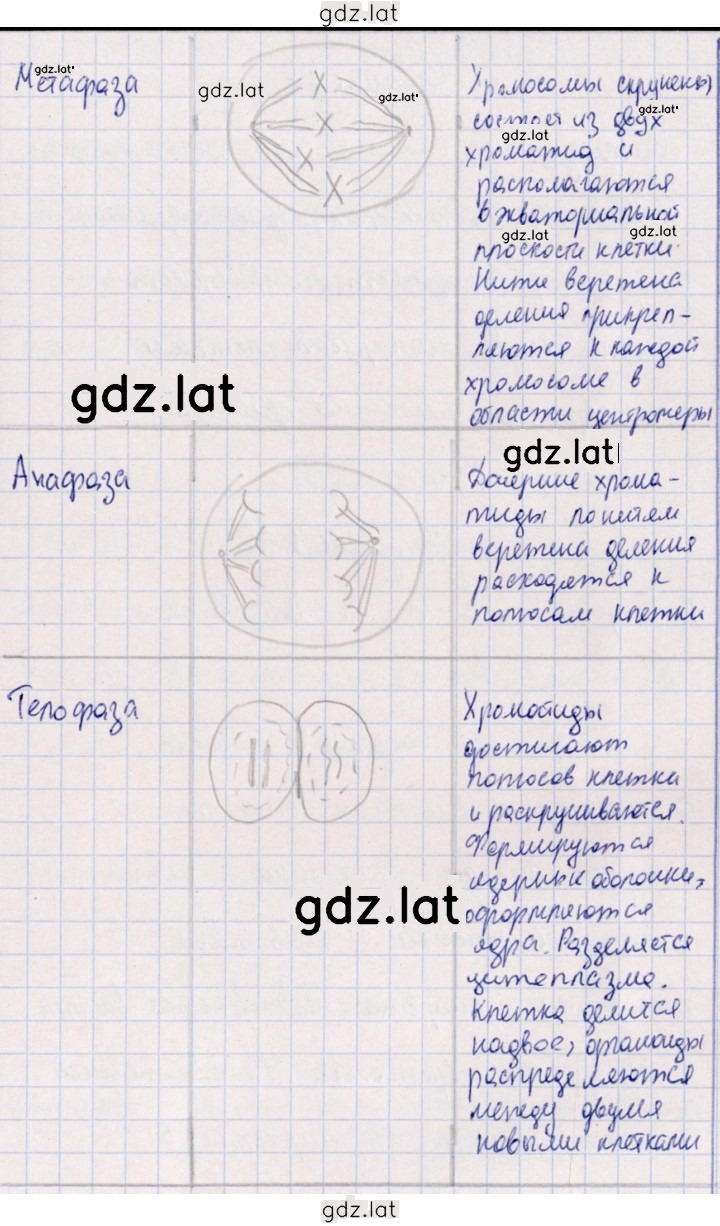 gdz.lat
Метафаза
gdz.lat
gdz.lat
gdz.lat
Хромосомы скручены,
gdz.lat
состоят из двух
gdz.lat
хроматид и
располагаются
в экваториальной
gdz.lat
gdz.lat
плоскости клетки.
Нити веретена
деления прикреп-
ляются к каждой
хромосоме в
области центромеры
gdz.lat
gdz.lat
Анафаза
Дочерние хрома-
тиды по нитям
веретена деления
расходятся к
полюсам клетки
Телофаза
Хроматиды
достигают
полюсов клетки
и раскручиваются.
Формируются
ядерные оболочки,
gdz.lat
оформляются
ядра. Разделяется
цитоплазма.
Клетка делится
надвое, органоиды
распределяются
между двумя
новыми клетками
gdz.lat